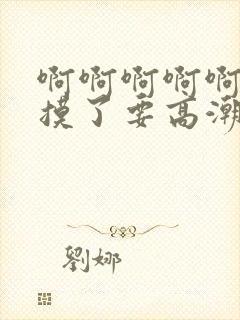 啊啊啊啊啊
摸了要高潮
劉娜